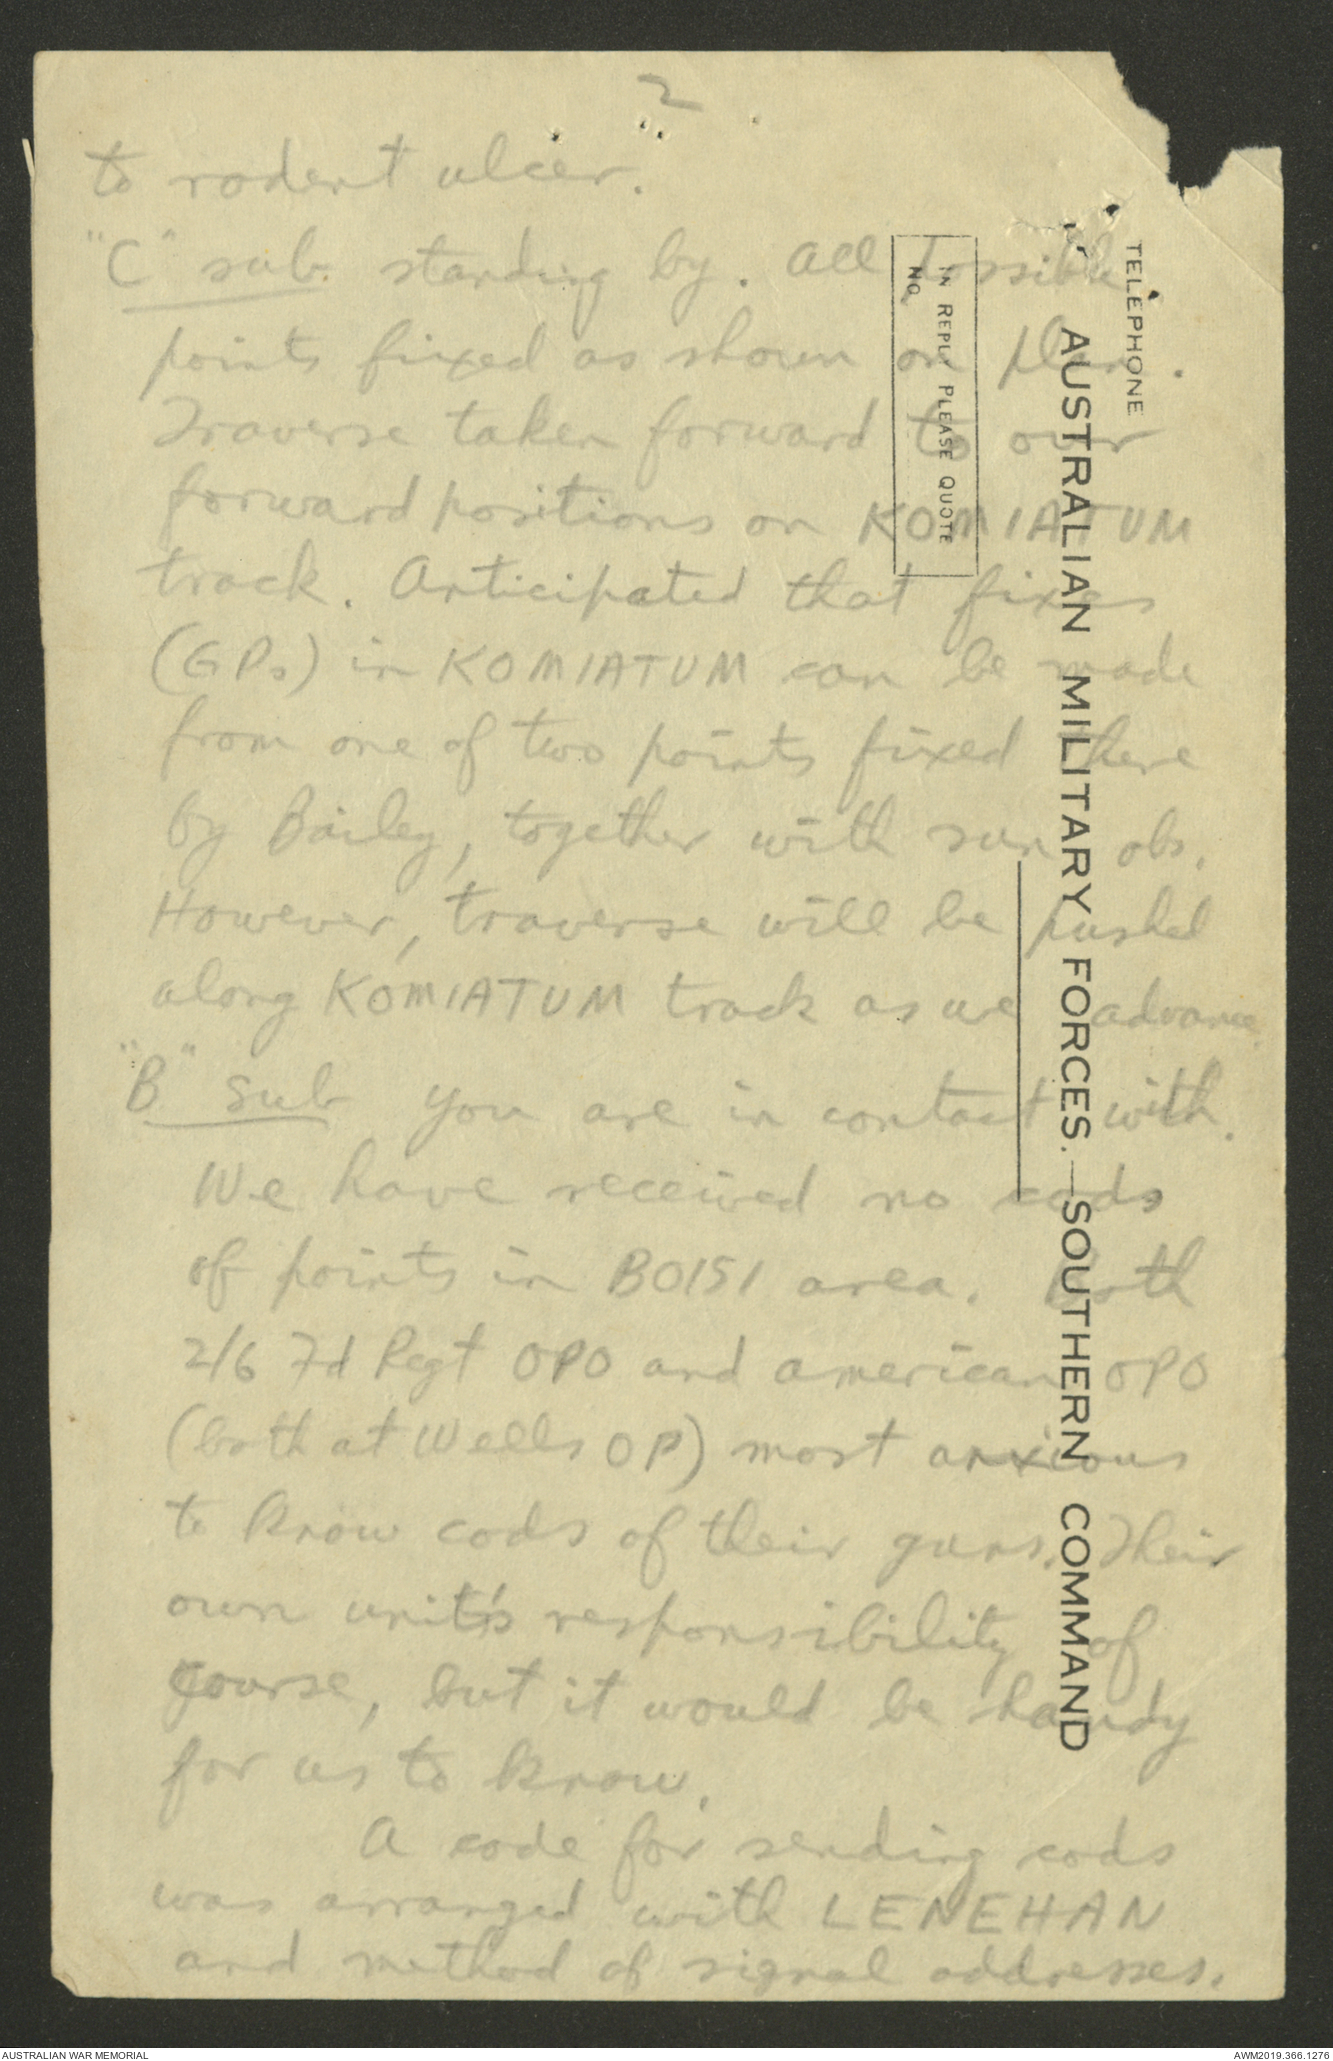 2
to rodent ulcer.
"C" sub. standing by. All possible
points fixed as shown on plan.
Traverse taken forward to our
forward positions on KOMIATUM
track. Anticipated that fixes
(GPs) in KOMIATUM can be made
from one of two points fixed there
by Bailey, together with sun obs.
However, traverse will be pushed
along KOMIATUM track as we advance.
"B" Sub you are in contact with.
We have received no cods
of points in BOISI area. Both
2/6 Fd Regt OPO and american OPO
(both at Wells OP) most anxious
to know cods of their guns. Their
own unit's responsibility of
course, but it would be handy
for us to know.
A code for sending cods
was arranged with LENEHAN
and method of signal addresses.
TELEPHONE
AUSTRALIAN MILITARY FORCES.—SOUTHERN COMMAND
IN REPLY PLEASE QUOTE
NO.
AUSTRALIAN WAR MEMORIAL
AWM2019.366.1276